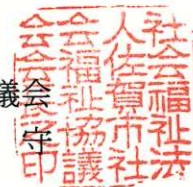 議会
守
社会福祉法
人佐賀市社
会福祉協議
会会印